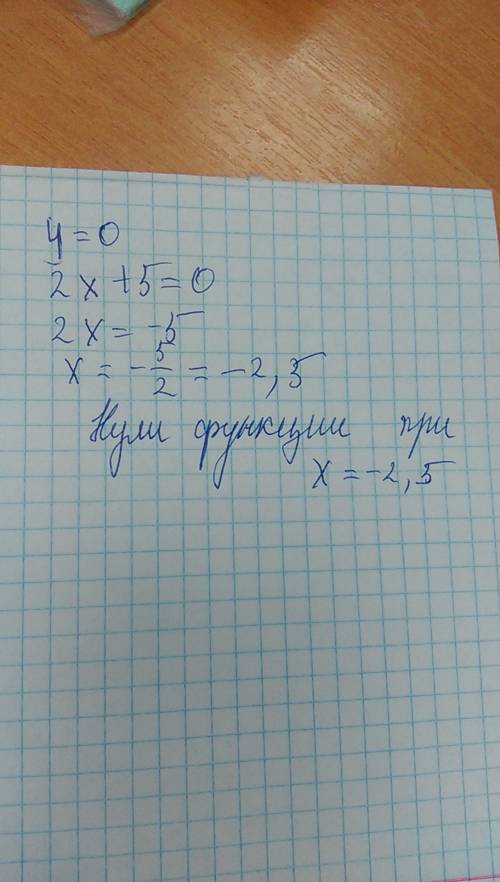 y=0
2x+5=0
2x=-5
x=-5/2=-2,5
Нули функции при
x=-2,5